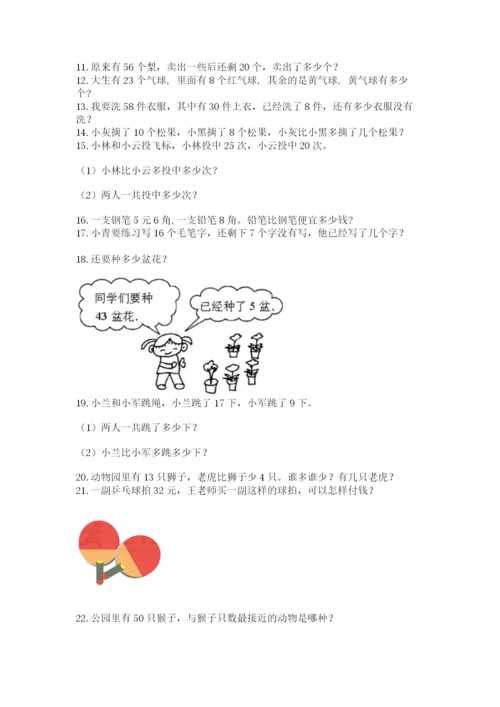 11.原来有 56 个梨，卖出一些后还剩 20 个，卖出了多少个？
12.大生有 23 个气球. 里面有 8 个红气球. 其余的是黄气球. 黄气球有多少
个?
13.我要洗 58 件衣服，其中有 30 件上衣，已经洗了 8 件，还有多少衣服没有
洗？
14.小灰摘了 10 个松果，小黑摘了 8 个松果，小灰比小黑多摘了几个松果？
15.小林和小云投飞标，小林投中 25 次，小云投中 20 次。
（1）小林比小云多投中多少次？
（2）两人一共投中多少次？
16.一支钢笔 5 元 6 角,一支铅笔 8 角。铅笔比钢笔便宜多少钱?
17.小青要练习写 16 个毛笔字，还剩下 7 个字没有写，他已经写了几个字？
18.还要种多少盆花？
同学们要种
43 盆花.
已经种了 5 盆.
19.小兰和小军跳绳，小兰跳了 17 下，小军跳了 9 下。
（1）两人一共跳了多少下？
（2）小兰比小军多跳多少下？
20.动物园里有 13 只狮子，老虎比狮子少 4 只。谁多谁少？有几只老虎？
21.一副乒乓球拍 32 元，王老师买一副这样的球拍，可以怎样付钱？
22.公园里有 50 只猴子，与猴子只数最接近的动物是哪种？